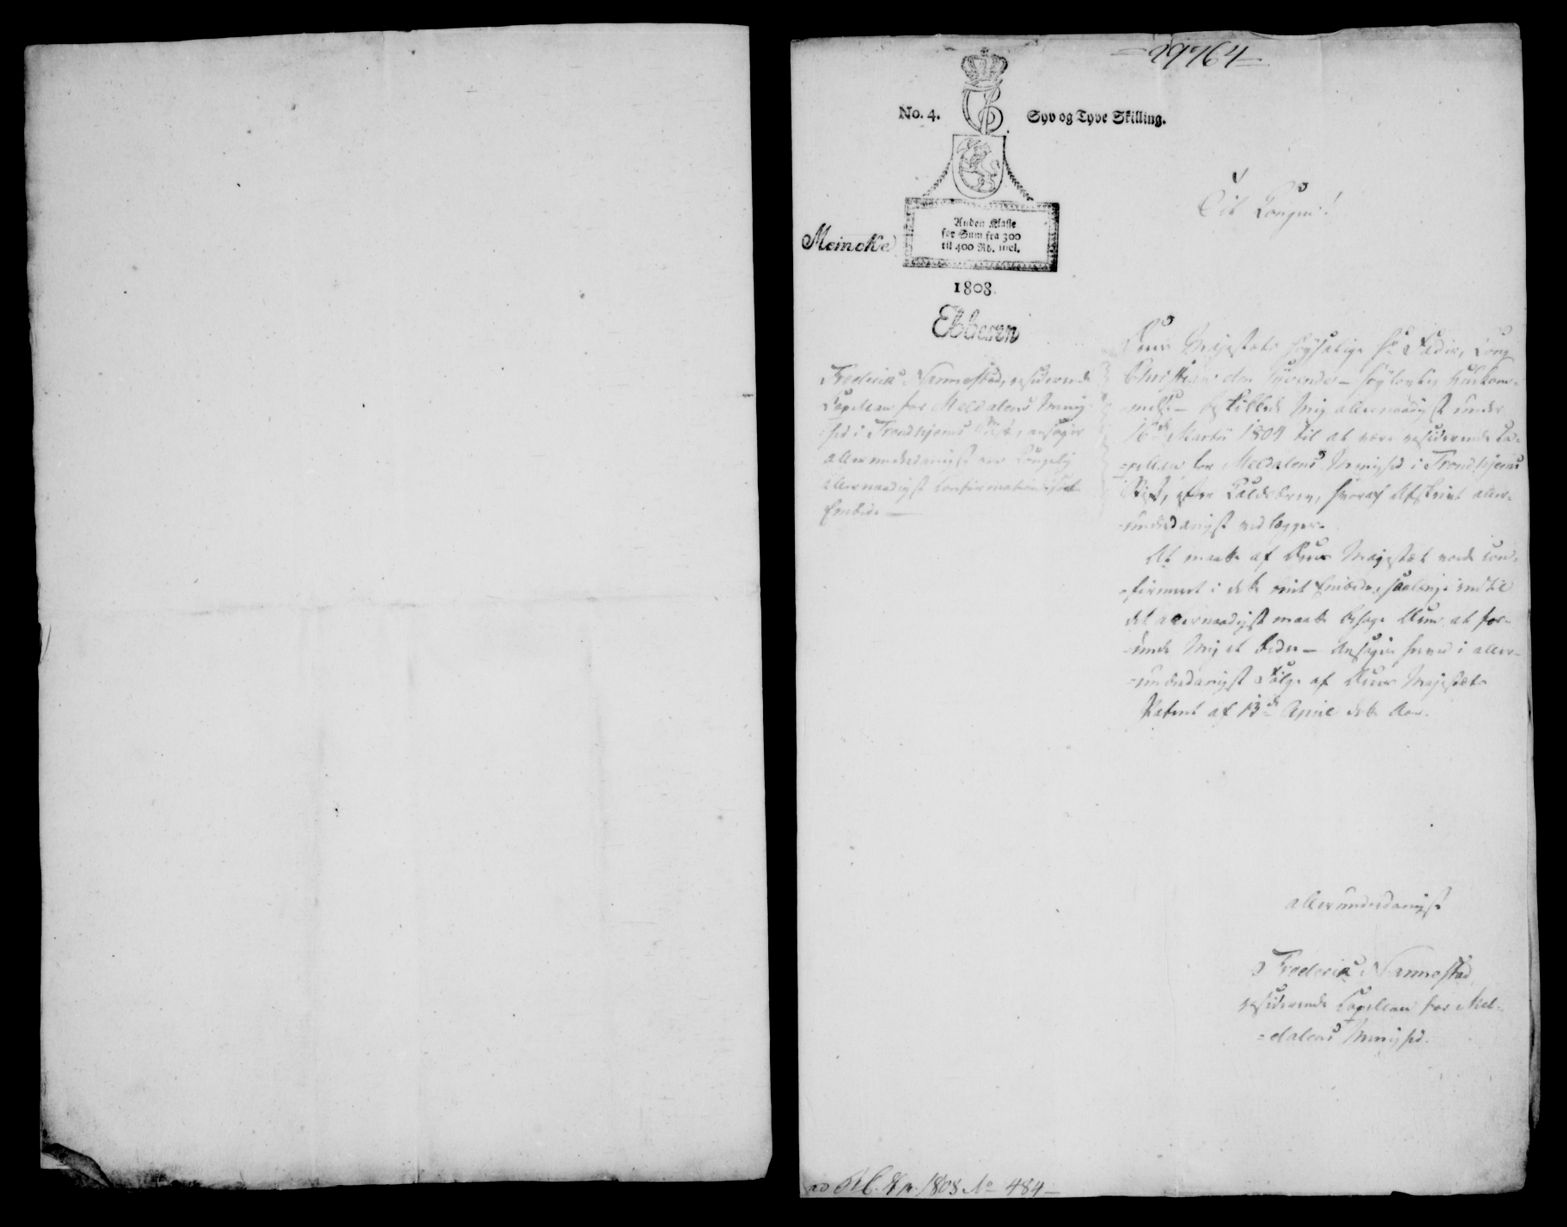 29764
No. 4.
Syv og Tyve Skilling.
Anden Klasse
for Sum fra 300
til 400 Rd. incl.
Meincke
1808.
Ebbesen
Til Kongen!
Frederik Nannestad, residerende
Capellan for Meldalens Menig-
hed i Trondhjems Stift, ansøger
allerunderdanigst om Kongelig
allernaadigst Confirmation
Embede
Deres Majestæts høysalige Hr. Fader, Kong
Christian den Syvende – høylovlig Ihukom-
melse – beskikkede mig allernaadigst under
16de Martii 1804 til at være residerende Ca-
pellan for Meldalens Menighed i Trondhjems
Stift, efter Kaldsbrev, hvoraf Afskrivt aller-
underdanigst vedlægges.
At maatte af Deres Majestæt vorde con-
firmeret i dette mit Embede, saalænge indtil
det allernaadigst maatte behage Dem, at for-
unde mig et bedre – ansøger herved i aller-
underdanigst Følge af Deres Majestæts
Patent af 13de April dette Aar.
allerunderdanigst
Frederik Nannestad
residerende Capellan for Mel-
dalens Menighed.
1808 No 484